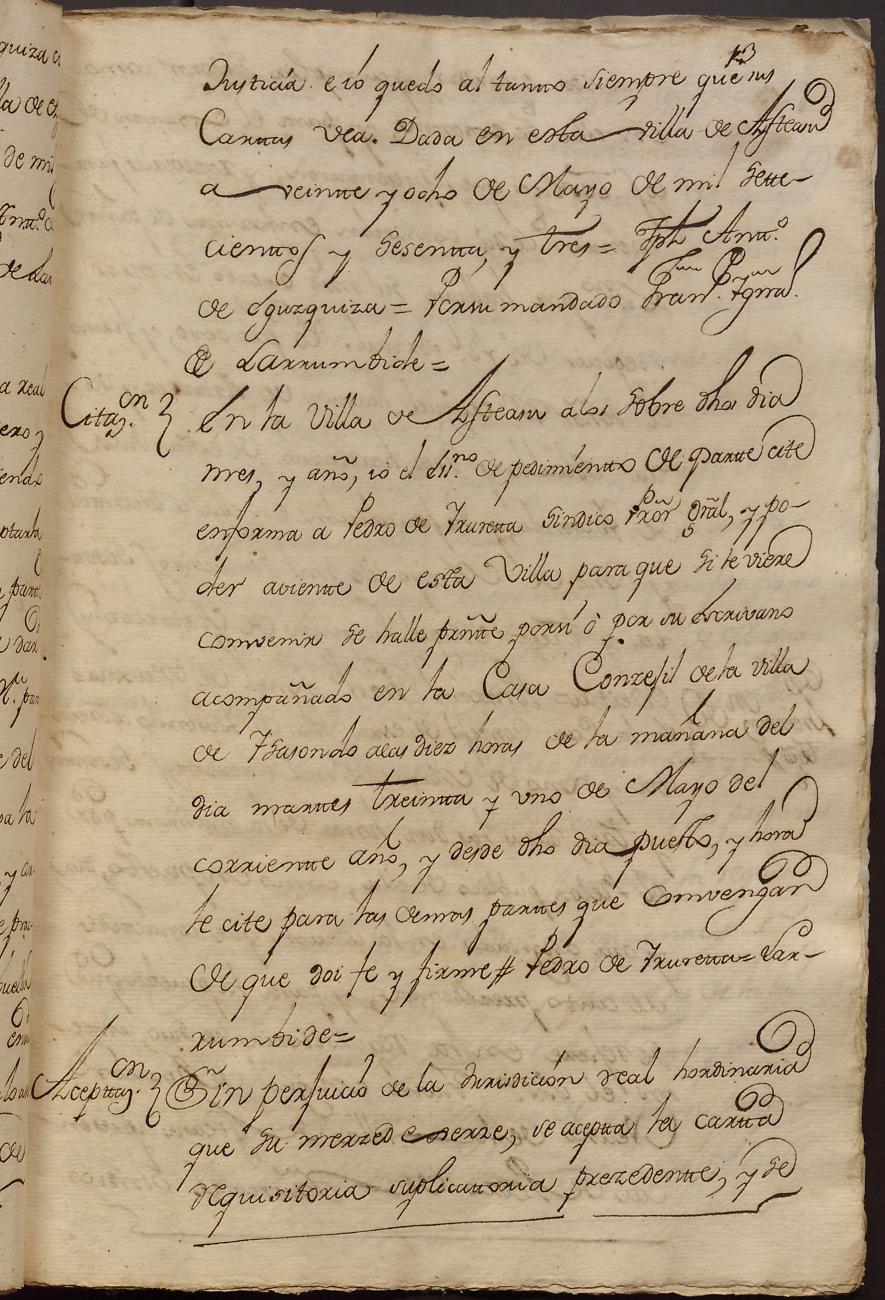 13
Justicia e io quedo al tanto siempre que sus
Cartas vea. Dada en esta villa de Asteasu
a veintte y ocho de Mayo de mil Sette-
cienttos y Sesentta, y tres= Jph Antt.º
de Eguzquiza= Por su mandado Fran.co Ygn.º
de Larrumbide=
Citaz.on En la Villa de Asteasu a los Sobre dhos dia
mes, y año, io el Ss.no de pedimientto de partte cite
en forma a Pedro de Yruretta Sindico Pror gral, y po-
der avientte de esta Villa para que si le viere
convenir se halle prntte por si ò por su Escrivano
acompañado en la Casa Conzejil de la villa
de Ysasondo a las diez horas de la mañana del
dia marttes treintta y uno de Mayo del
corrientte año, y desde dho dia puesto, y hora
le cite para las demas parttes que Convengan
De que doi fe y firme # Pedro de Yruretta= Lar-
rumbide=
Acepttaz.on Sin perjuicio de la Jurisdición real hordinaria
que Su merzed exerze, se aceptta la cartta
requisitoria suplicattoria prezedentte, y se